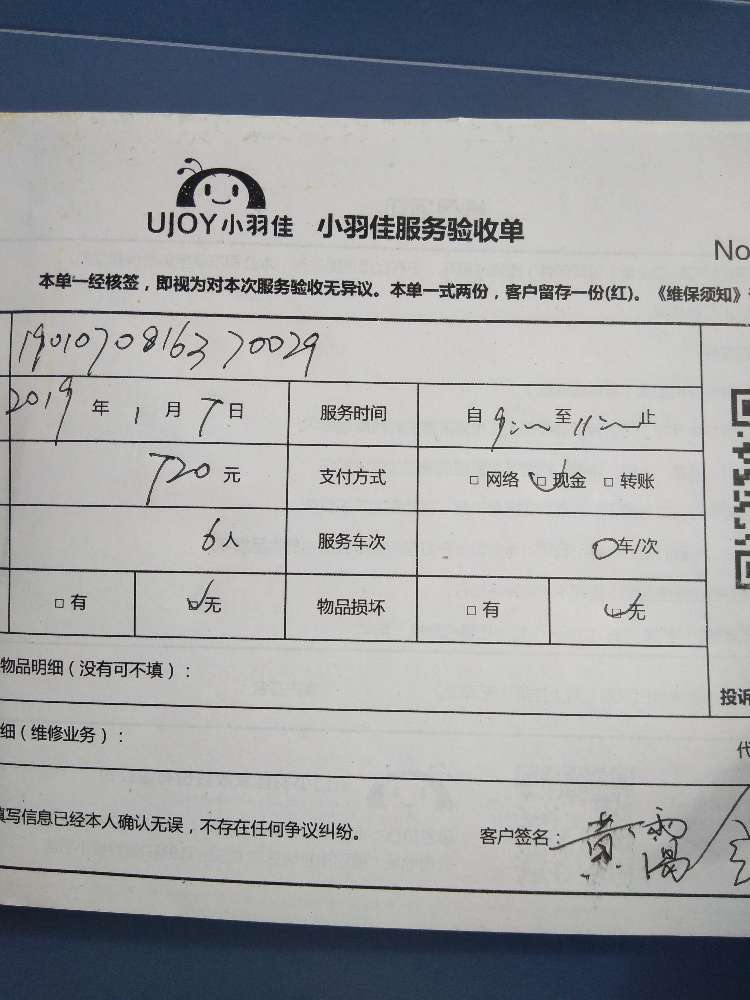 UJOY小羽佳 小羽佳服务验收单
No
本单一经核签，即视为对本次服务验收无异议。本单一式两份，客户留存一份(红)。《维保须知》
1901070816370029
2019 年 1 月 7 日 服务时间 自 9: 至 11: 止
720 元 支付方式 □ 网络 □ 现金 □ 转账
6 人 服务车次 0 车/次
□ 有 □ 无 物品损坏 □ 有 □ 无
物品明细（没有可不填）：
投诉
细（维修业务）：
代
填写信息已经本人确认无误，不存在任何争议纠纷。 客户签名：